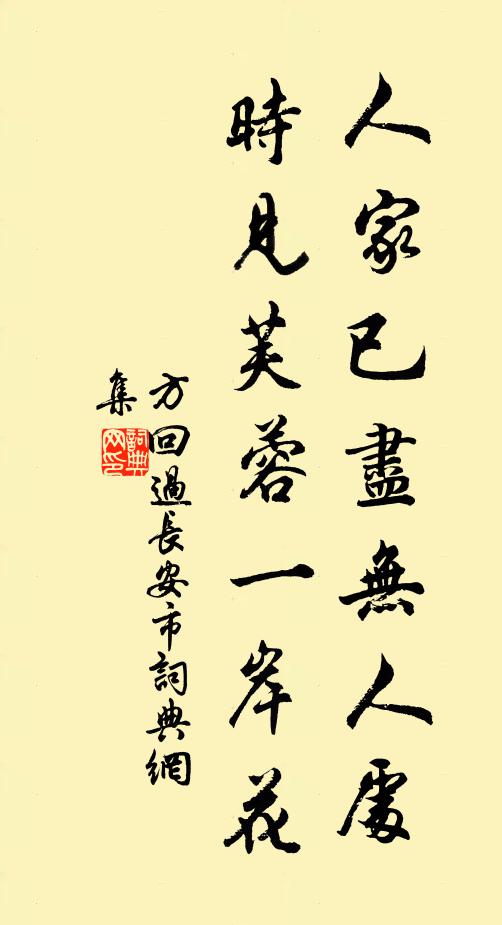 人家已盡無人處
時見芙蓉一岸花
方回過長安市詞典網
集
詞典
网印